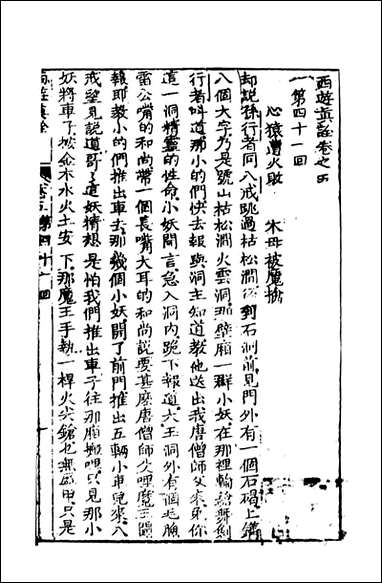 西遊真詮卷之五
第四十一回
心猿遭火敗　木母被魔擒
却說孫行者同八戒跳過枯松澗徑到石洞前見門外有一個石碣上鐫
八個大字乃是號山枯松澗火雲洞那壁廂一群小妖在那裡輪鎗舞劍
行者叫道那小的們快去報與洞主知道教他送出我唐僧師父來免你
這一洞精靈的性命小妖聞言急入洞內跪下報道大王洞外有個毛臉
雷公嘴的和尚帶一個長嘴大耳的和尚說要甚麼唐僧師父哩魔王
報耶教小的們推出車去那幾個小妖開了前門推出五輛小車兒來八
戒望見說道哥了這妖精想是怕我們推出車子往那廂搬哩只見那小
妖將車子按金木水火土安下那魔王手執一桿火尖鎗也無盔甲只是
西遊真詮
第四十一回